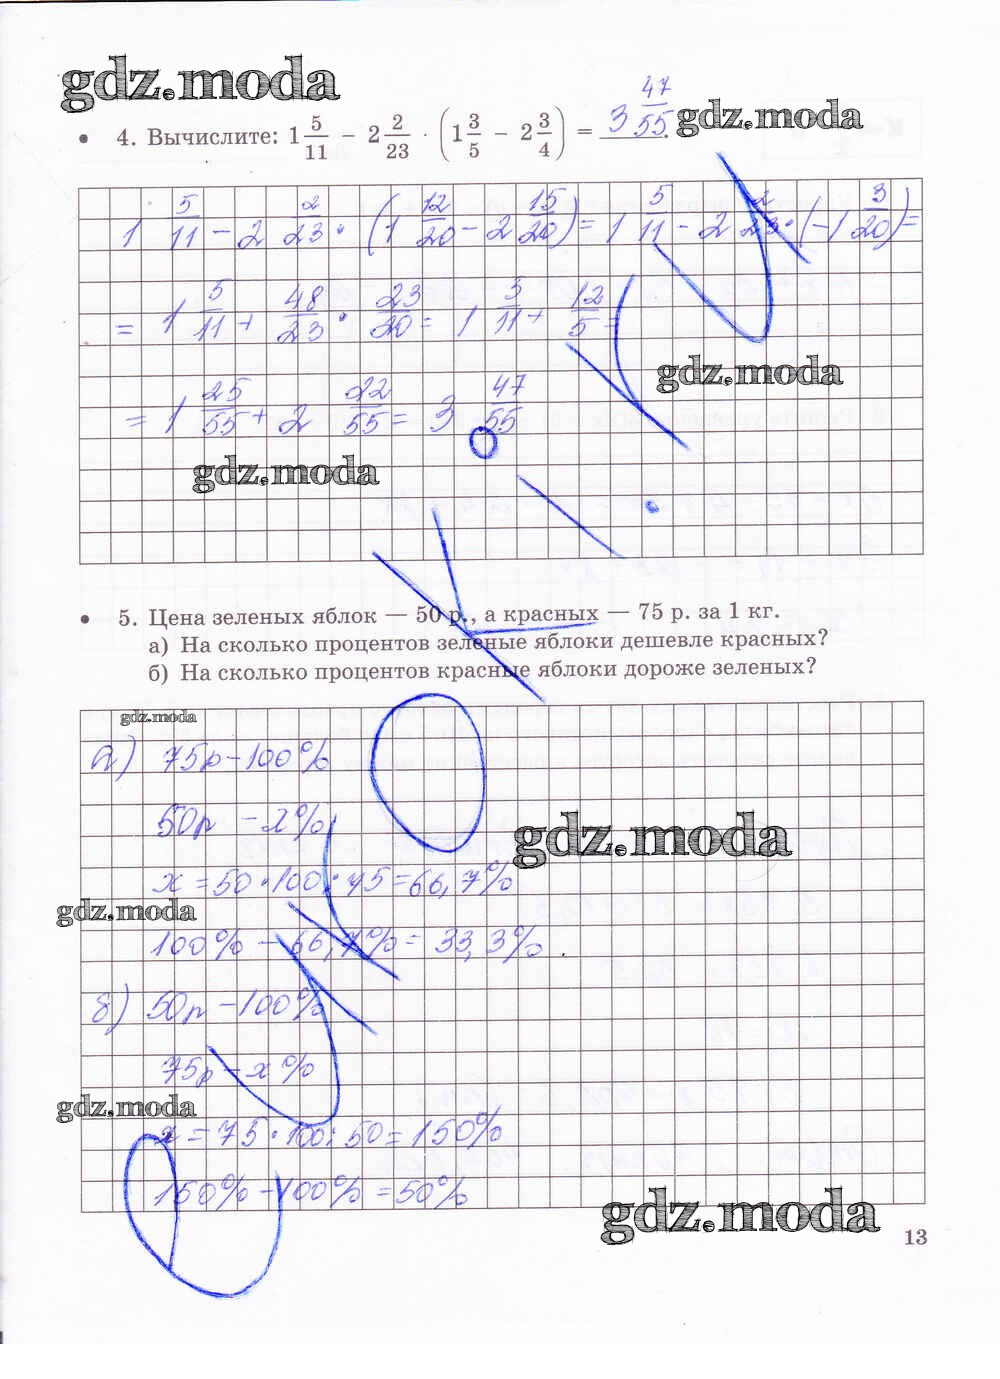 gdz.moda
4. Вычислите: 1 5/11 − 2 2/23 · (1 3/5 − 2 3/4) = 3 47/55.
gdz.moda
1 5/11 − 2 2/23 · (1 12/20 − 2 15/20) = 1 5/11 − 2 2/23 · (−1 3/20) =
= 1 5/11 + 48/23 · 23/20 = 1 5/11 + 12/5 =
gdz.moda
= 1 25/55 + 2 22/55 = 3 47/55
gdz.moda
5. Цена зеленых яблок — 50 р., а красных — 75 р. за 1 кг.
а) На сколько процентов зеленые яблоки дешевле красных?
б) На сколько процентов красные яблоки дороже зеленых?
gdz.moda
а) 75р − 100%
50р − x%
gdz.moda
x = 50 · 100 : 75 = 66,7%
gdz.moda
100% − 66,7% = 33,3%
б) 50р − 100%
75р − x%
gdz.moda
x = 75 · 100 : 50 = 150%
150% − 100% = 50%
gdz.moda
13